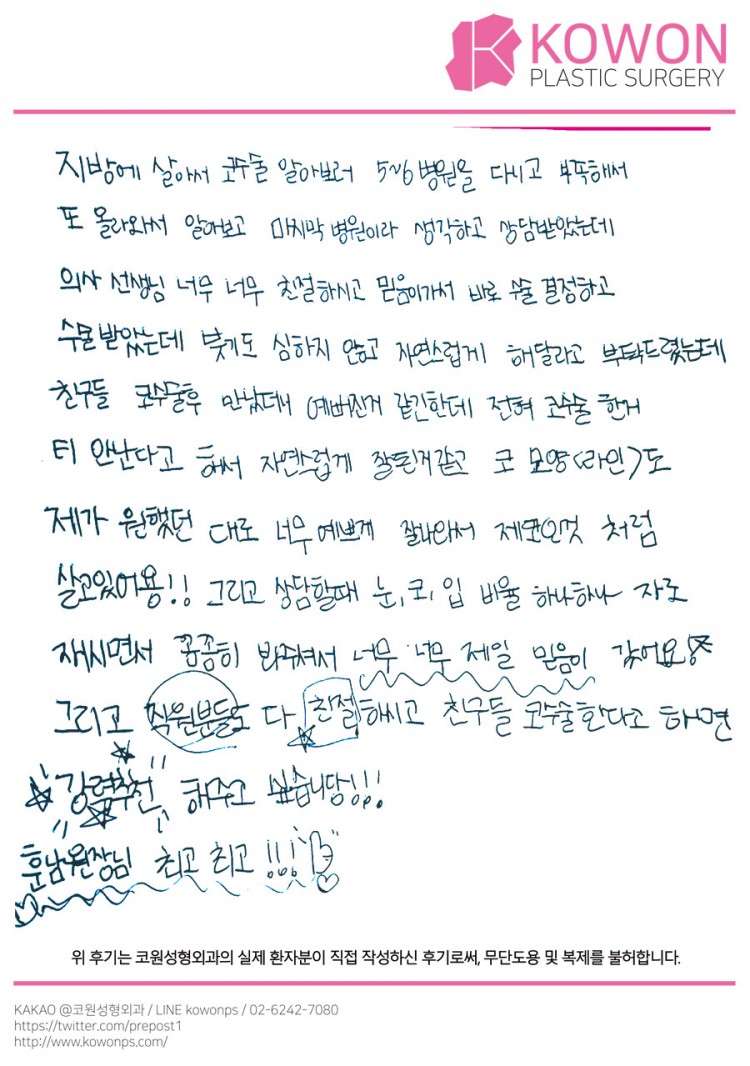 KOWON
PLASTIC SURGERY
지방에 살아서 코수술 알아보러 5~6 병원을 다시고 부족해서
또 올라와서 알아보고 마지막 병원이라 생각하고 상담받았는데
의사 선생님 너무 너무 친절하시고 믿음이가서 바로 수술 결정하고
수술받았는데 붓기도 심하지 않고 자연스럽게 해달라고 부탁드렸는데
친구들 코수술후 만났더니 예뻐진거 같긴한데 전혀 코수술 한거
티 안난다고 해서 자연스럽게 잘된거같고 코 모양(라인)도
제가 원했던 대로 너무 예쁘게 잘나와서 제코인것 처럼
살고있어용!! 그리고 상담할때 눈, 코, 입 비율 하나하나 자로
재시면서 꼼꼼히 봐주셔서 너무 너무 제일 믿음이 갔어요!
그리고 직원분들도 다 친절하시고 친구들 코수술한다고 하면
강력추천 해주고 싶습니당!!!
훈남원장님 최고 최고!!!
위 후기는 코원성형외과의 실제 환자분이 직접 작성하신 후기로써, 무단도용 및 복제를 불허합니다.
KAKAO @코원성형외과 / LINE kowonps / 02-6242-7080
https://twitter.com/prepost1
http://www.kowonps.com/